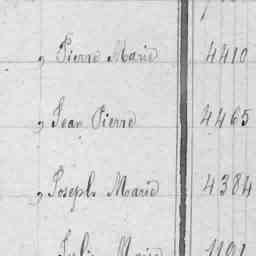 , Pierre Marie 4410
, Jean Pierre 4465
, Joseph Marie 4384
Marie